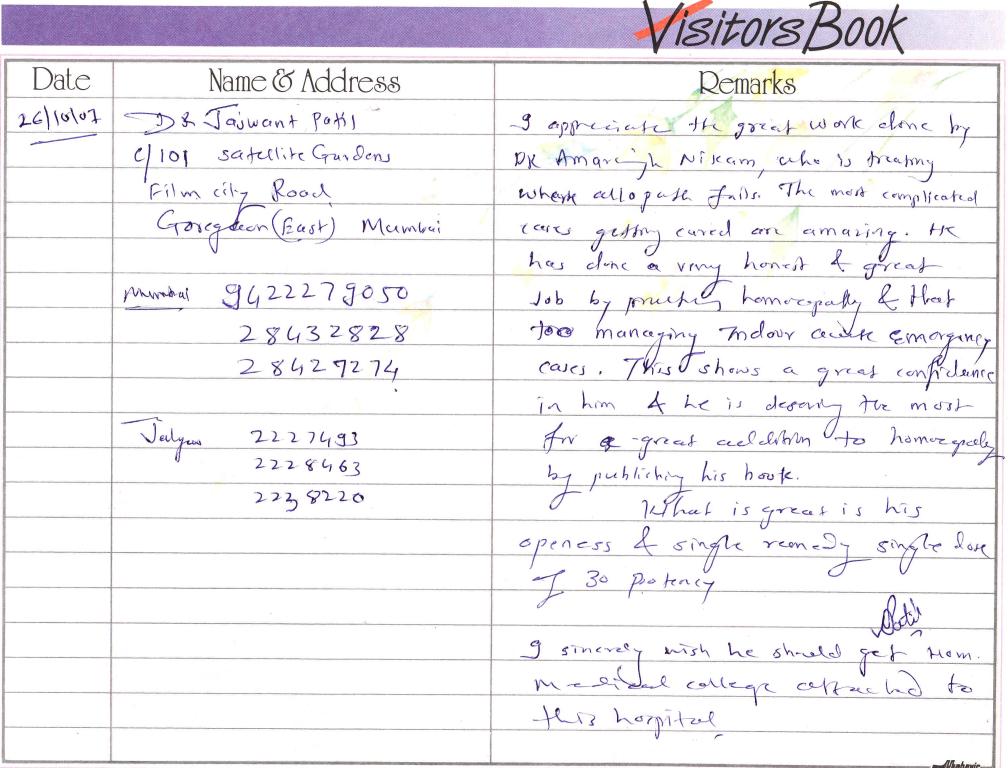 Visitors Book
Date Name & Address Remarks
26/10/07
Dr Jaswant Patil
C/101 Satellite Gardens
Film city Road
Goregaon (East) Mumbai
Mumbai 9422279050
28432828
28427274
Jalgaon 2227493
2228463
2238220
I appreciate the great work done by
DR Amarsingh Nikam, who is treating
where allopath fails. The most complicated
cases getting cured are amazing. He
has done a very honest & great
Job by practising homoeopathy & that
too managing Indoor acute Emergency
cases. This shows a great confidence
in him & he is deserving the most
for a great addition to homoeopathy
by publishing his book.
What is great is his
openess & single remedy single dose
of 30 potency
Patil
I sincerely wish he should get Hom.
Medical college attached to
this hospital